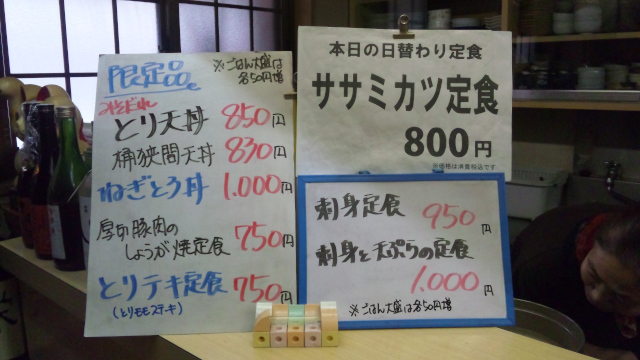 限定品。
※ごはん大盛は
各50円増
みそだれ
とり天丼 850円
桶狭間天丼 830円
ねぎとろ丼 1.000円
厚切豚肉の
しょうが焼定食 750円
とりテキ定食 750円
(とりモモステキ)
本日の日替わり定食
ササミカツ定食
800円
※価格は消費税込です
刺身定食 950円
刺身と天ぷらの定食
1.000円
※ごはん大盛は各50円増